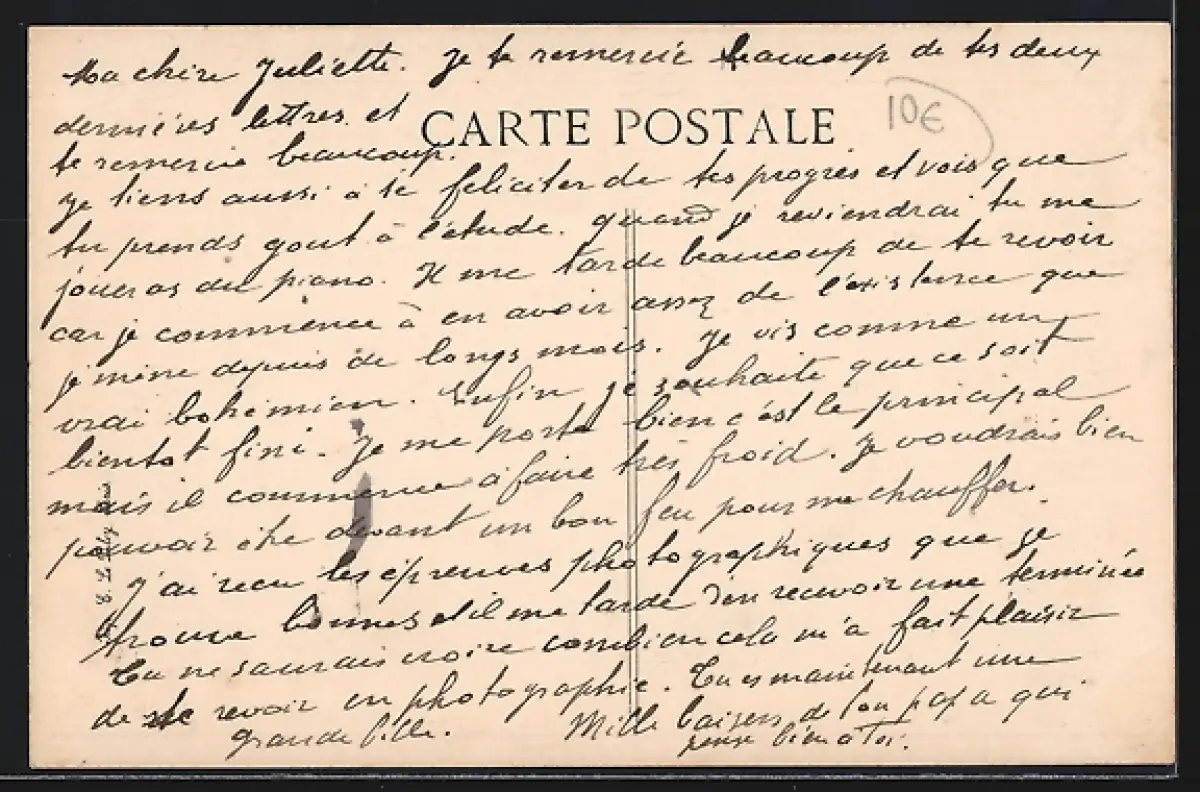 Ma chère Juliette. Je te remercie beaucoup de tes deux
dernières lettres. et
CARTE POSTALE
10€
te remercie beaucoup.
Je tiens aussi à te feliciter de tes progrès et vois que
tu prends gout à l'étude. quand je reviendrai tu me
joueras du piano. Il me tarde beaucoup de te revoir
car je commence à en avoir assez de l'existence que
je mène depuis de longs mois. Je vis comme un
vrai bohémien. Enfin je souhaite que ce soit
bientot fini. Je me porte bien c'est le principal
mais il commence à faire très froid. Je voudrais bien
pouvoir être devant un bon feu pour me chauffer.
J'ai recu les épreuves photographiques que je
trouve bonnes et il me tarde d'en recevoir une terminée
Tu ne saurais croire combien cela m'a fait plaisir
de te revoir en photographie. Tu es maintenant une
grande fille. Mille baisers de ton papa qui
pense bien à toi.